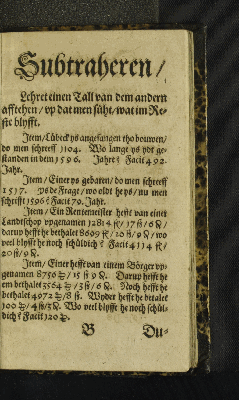 Subtraheren/
Lehret einen Tall van dem andern
afftehen/vp dat men süht/wat im Re-
ste blyfft.
Item/Lübeck ys angefangen tho bouwen/
do men schreeff 1104. Wo langt ys ydt ge-
standen in dem 1596. Jahre? Facit 492.
Jahr.
Item/Einer ys gebaren/do men schreeff
1517. ys de Frage/wo oldt he ys/nu men
schrifft 1596? Facit 79. Jahr.
Item/Ein Rentemeister hefft van einer
Landtschop vpgenamen 12814 /17 ß/6 ₰/
darup hefft he bethalet 8609 /20 ß/9 ₰/wo
veel blyfft he noch schüldich? Facit 4114 /
20 ß/9 ₰.
Item/Einer hefft van einem Börger vp-
genamen 8750 /15 ß 9 ₰. Darup hefft he
em bethalet 3564 /3 ß/6 ₰. Noch hefft he
bethalet 4972 /8 ß. Wyder hefft he betalet
100 /4 ß/3 ₰. Wo veel blyfft he noch schül-
dich? Facit 120 .
B Du-